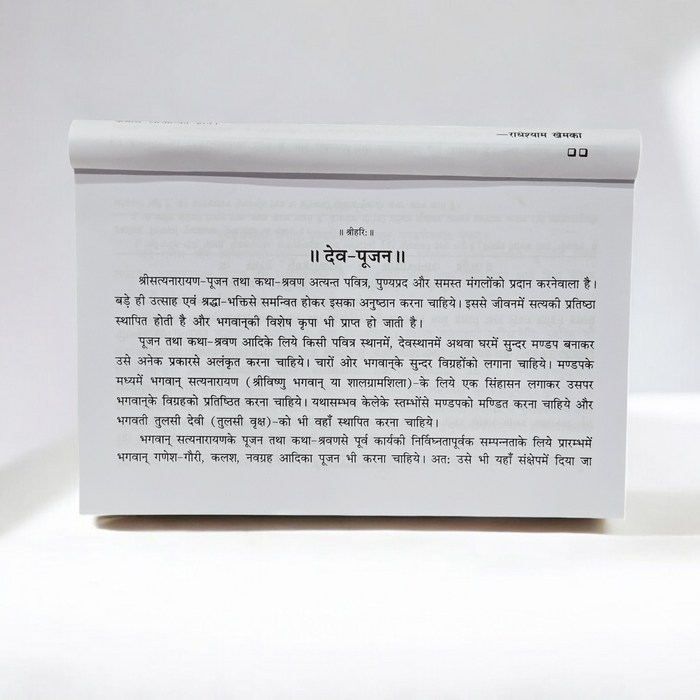 —राधेश्याम खेमका
॥ श्रीहरि: ॥
॥ देव-पूजन ॥
श्रीसत्यनारायण-पूजन तथा कथा-श्रवण अत्यन्त पवित्र, पुण्यप्रद और समस्त मंगलोंको प्रदान करनेवाला है।
बड़े ही उत्साह एवं श्रद्धा-भक्तिसे समन्वित होकर इसका अनुष्ठान करना चाहिये। इससे जीवनमें सत्यकी प्रतिष्ठा
स्थापित होती है और भगवान्‌की विशेष कृपा भी प्राप्त हो जाती है।
पूजन तथा कथा-श्रवण आदिके लिये किसी पवित्र स्थानमें, देवस्थानमें अथवा घरमें सुन्दर मण्डप बनाकर
उसे अनेक प्रकारसे अलंकृत करना चाहिये। चारों ओर भगवान्‌के सुन्दर विग्रहोंको लगाना चाहिये। मण्डपके
मध्यमें भगवान् सत्यनारायण (श्रीविष्णु भगवान् या शालग्रामशिला)-के लिये एक सिंहासन लगाकर उसपर
भगवान्‌के विग्रहको प्रतिष्ठित करना चाहिये। यथासम्भव केलेके स्तम्भोंसे मण्डपको मण्डित करना चाहिये और
भगवती तुलसी देवी (तुलसी वृक्ष)-को भी वहाँ स्थापित करना चाहिये।
भगवान् सत्यनारायणके पूजन तथा कथा-श्रवणसे पूर्व कार्यकी निर्विघ्नतापूर्वक सम्पन्नताके लिये प्रारम्भमें
भगवान् गणेश-गौरी, कलश, नवग्रह आदिका पूजन भी करना चाहिये। अत: उसे भी यहाँ संक्षेपमें दिया जा